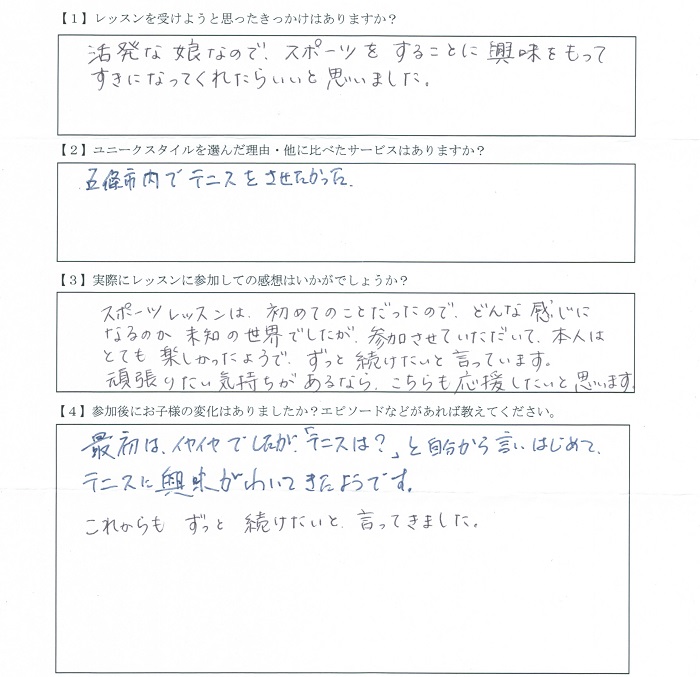 【1】レッスンを受けようと思ったきっかけはありますか？
活発な娘なので、スポーツをすることに興味をもって
すきになってくれたらいいと思いました。
【2】ユニークスタイルを選んだ理由・他に比べたサービスはありますか？
五條市内でテニスをさせたかった。
【3】実際にレッスンに参加しての感想はいかがでしょうか？
スポーツレッスンは、初めてのことだったので、どんな感じに
なるのか未知の世界でしたが、参加させていただいて、本人は
とても楽しかったようで、ずっと続けたいと言っています。
頑張りたい気持ちがあるなら、こちらも応援したいと思います。
【4】参加後にお子様の変化はありましたか？エピソードなどがあれば教えてください。
最初は、イヤイヤでしたが、「テニスは？」と自分から言いはじめて、
テニスに興味がわいてきたようです。
これからもずっと続けたいと、言ってきました。